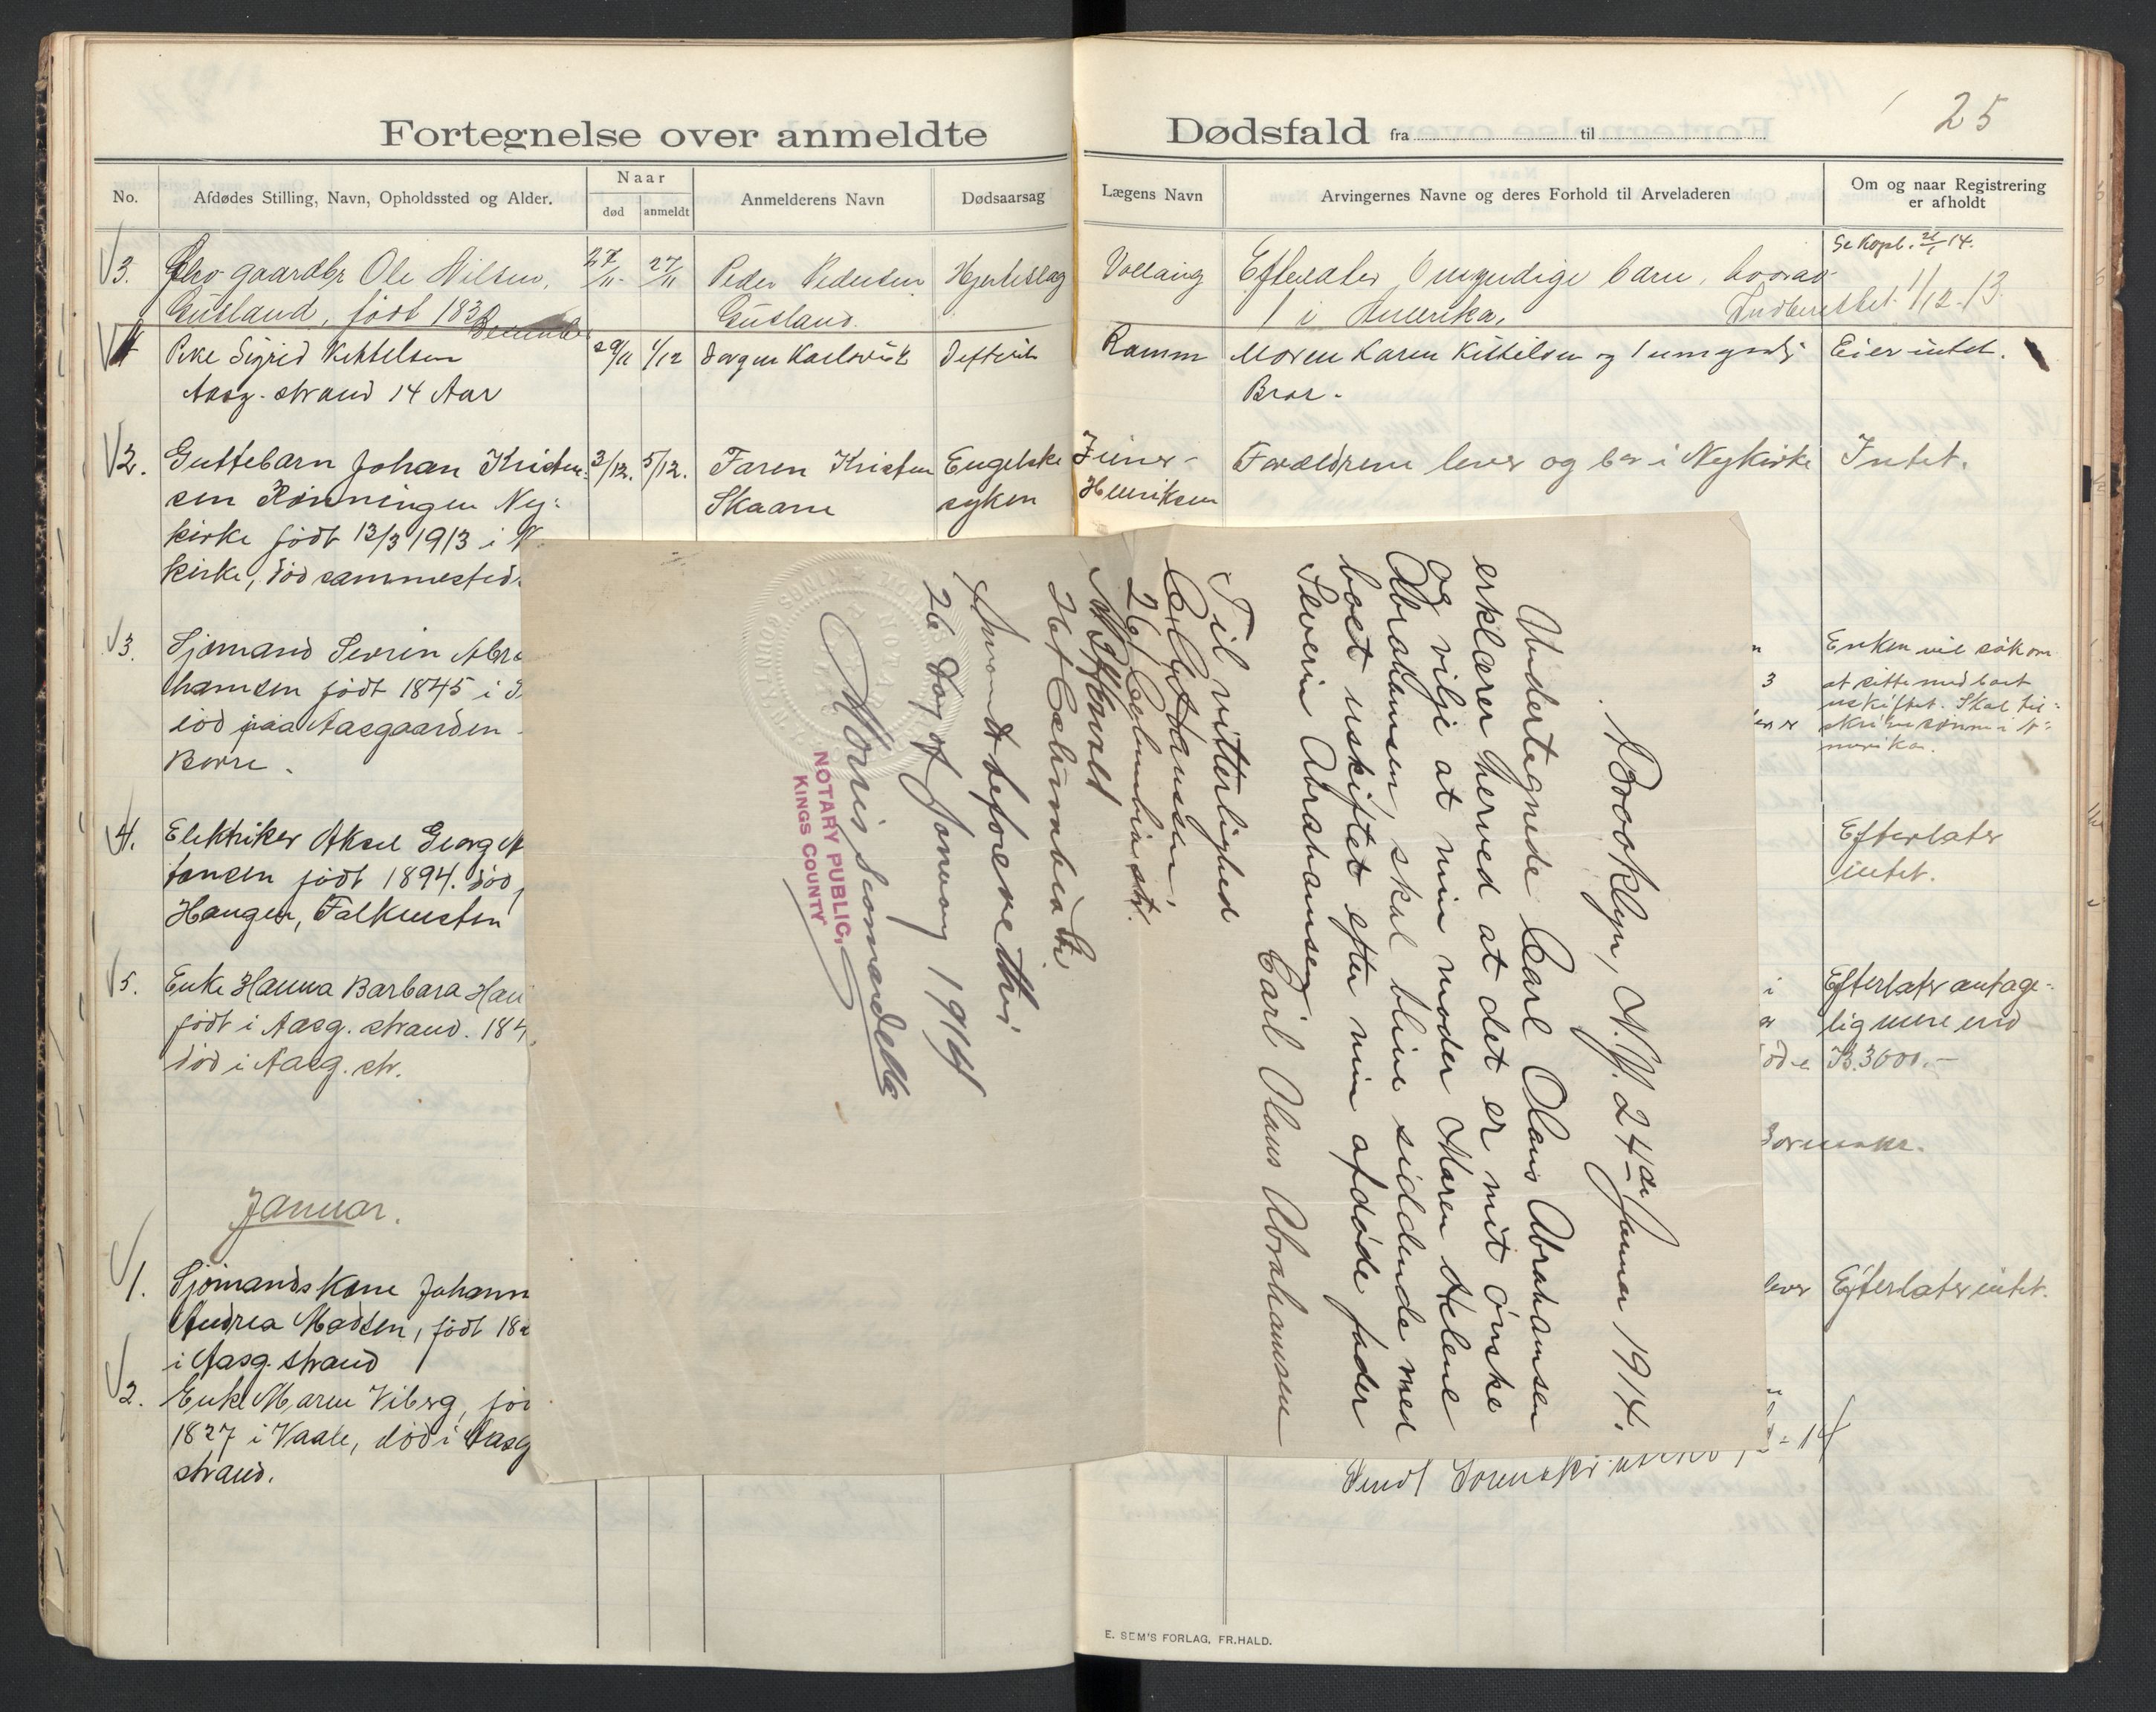 25
Fortegnelse over anmeldte Dødsfald fra til
No.
Afdødes Stilling, Navn, Opholdssted og Alder.
Naar
død
anmeldt
Anmelderens Navn
Dødsaarsag
Lægens Navn
Arvingernes Navne og deres Forhold til Arveladeren
Om og naar Registrering
er afholdt
3. gaardbr Ole Nilsen, 27/11 27/11 Peder Pedersen Hjerteslag
Gusland, født 1830 Gusland.
Desember
1 Pike Sigrid Kittelsen 29/11 1/12 Jørgen Karlsvik Difterit
Aasg. strand 14 Aar
2. Guttebarn Johan Kristen- 3/12. 5/12. Faren Kristen Engelske
sen Rønningen Ny- Skaane syken
kirke født 13/3 1913 i N
kirke, død sammesteds
3. Sjømand Sevrin Abra
hamsen født 1845 i
død paa Aasgaarden
Borre.
4. Elektriker Aksel Georg
tonsen født 1894. død
Haugen, Falkensten
5. Enke Hanna Barbara Han
født i Aasg. strand. 184
død i Aasg. str.
Januar.
1. Sjømandskone Johann
Andrea Madsen, født 18
i Aasg. strand
2. Enke Maren Viberg, fø
1827 i Vaale, død i Aasg
strand.
Se Kopb. 21/1 14.
Efterlater umyndige barn, hvorav
1 i Amerika. Indberettet 1/12-13
Ramm Moren Karen Kittilsen og 1 umyndig Eier intet.
Bror.
Ziener- Forældrene lever og bor i Nykirke Intet.
Henriksen
Enken vil søke om
3 at sitte med boet
uskiftet. Skal til-
skrive sønnen i A-
merika.
Efterlater
intet.
i Efterlater antage-
lig mere end
Kr. 3000.-
lever Efterlater intet.
14
Sendt Sorenskr
Brooklyn, N.Y. 24de Januar 1914.
Undertegnede Carl Olaus Abrahamsen
erklærer herved at det er mit ønske
og vilje at min moder Maren Helene
Abrahamsen, skal blive siddende med
boet uskiftet efter min afdøde fader
Severin Abrahamsen.
Carl Olaus Abrahamsen
Til vitterlighed
Carl G. Hansen,
261 Columbia str.
261 Columbia St
Sworn to before me this
26 Day of January 1914
Morris
NOTARY PUBLIC,
KINGS COUNTY
E. SEM'S FORLAG, FR.HALD.